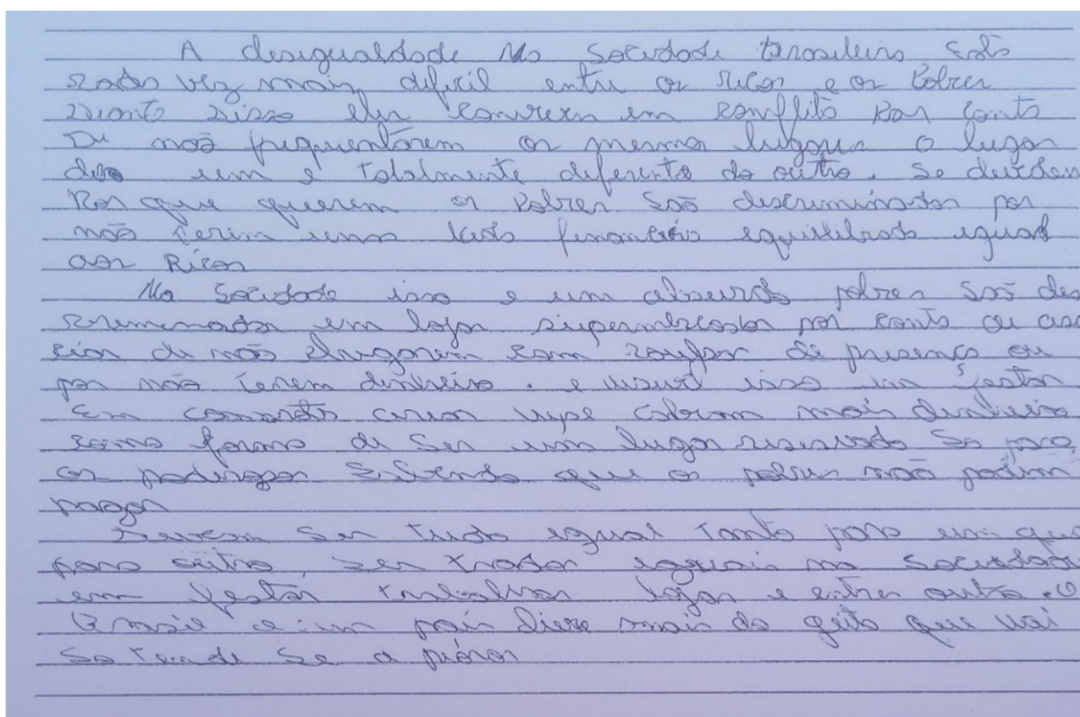 A desigualdade na sociedade brasileira está
cada vez mais dificil entre os ricos e os Pobres
Diante disso eles convivem em conflito por conta
De não frequentarem os mesmo lugares o lugar
de um é totalmente diferente do outro. se devidem
Por que querem os Pobres são descriminados por
não terem uma financeira equilibrada igual
aos Ricos
Na sociedade isso e um absurdo pobres são des
creminados em lojas supermercados por conta ou as
de não chegarem com roupas de presença ou
por não terem dinheiro. e isso em festas
Em camarote cobram mais dinheiro
como forma de ser um lugar reservado So para
os poderosos que os pobres não podem
pagar
Devem ser tudo igual tanto para um que
para outro, ser iguais na sociedade
em festas trabalhos lojas e entre outro. O
Brasil e um país livre mais do geito que vai
So tende se a piorar